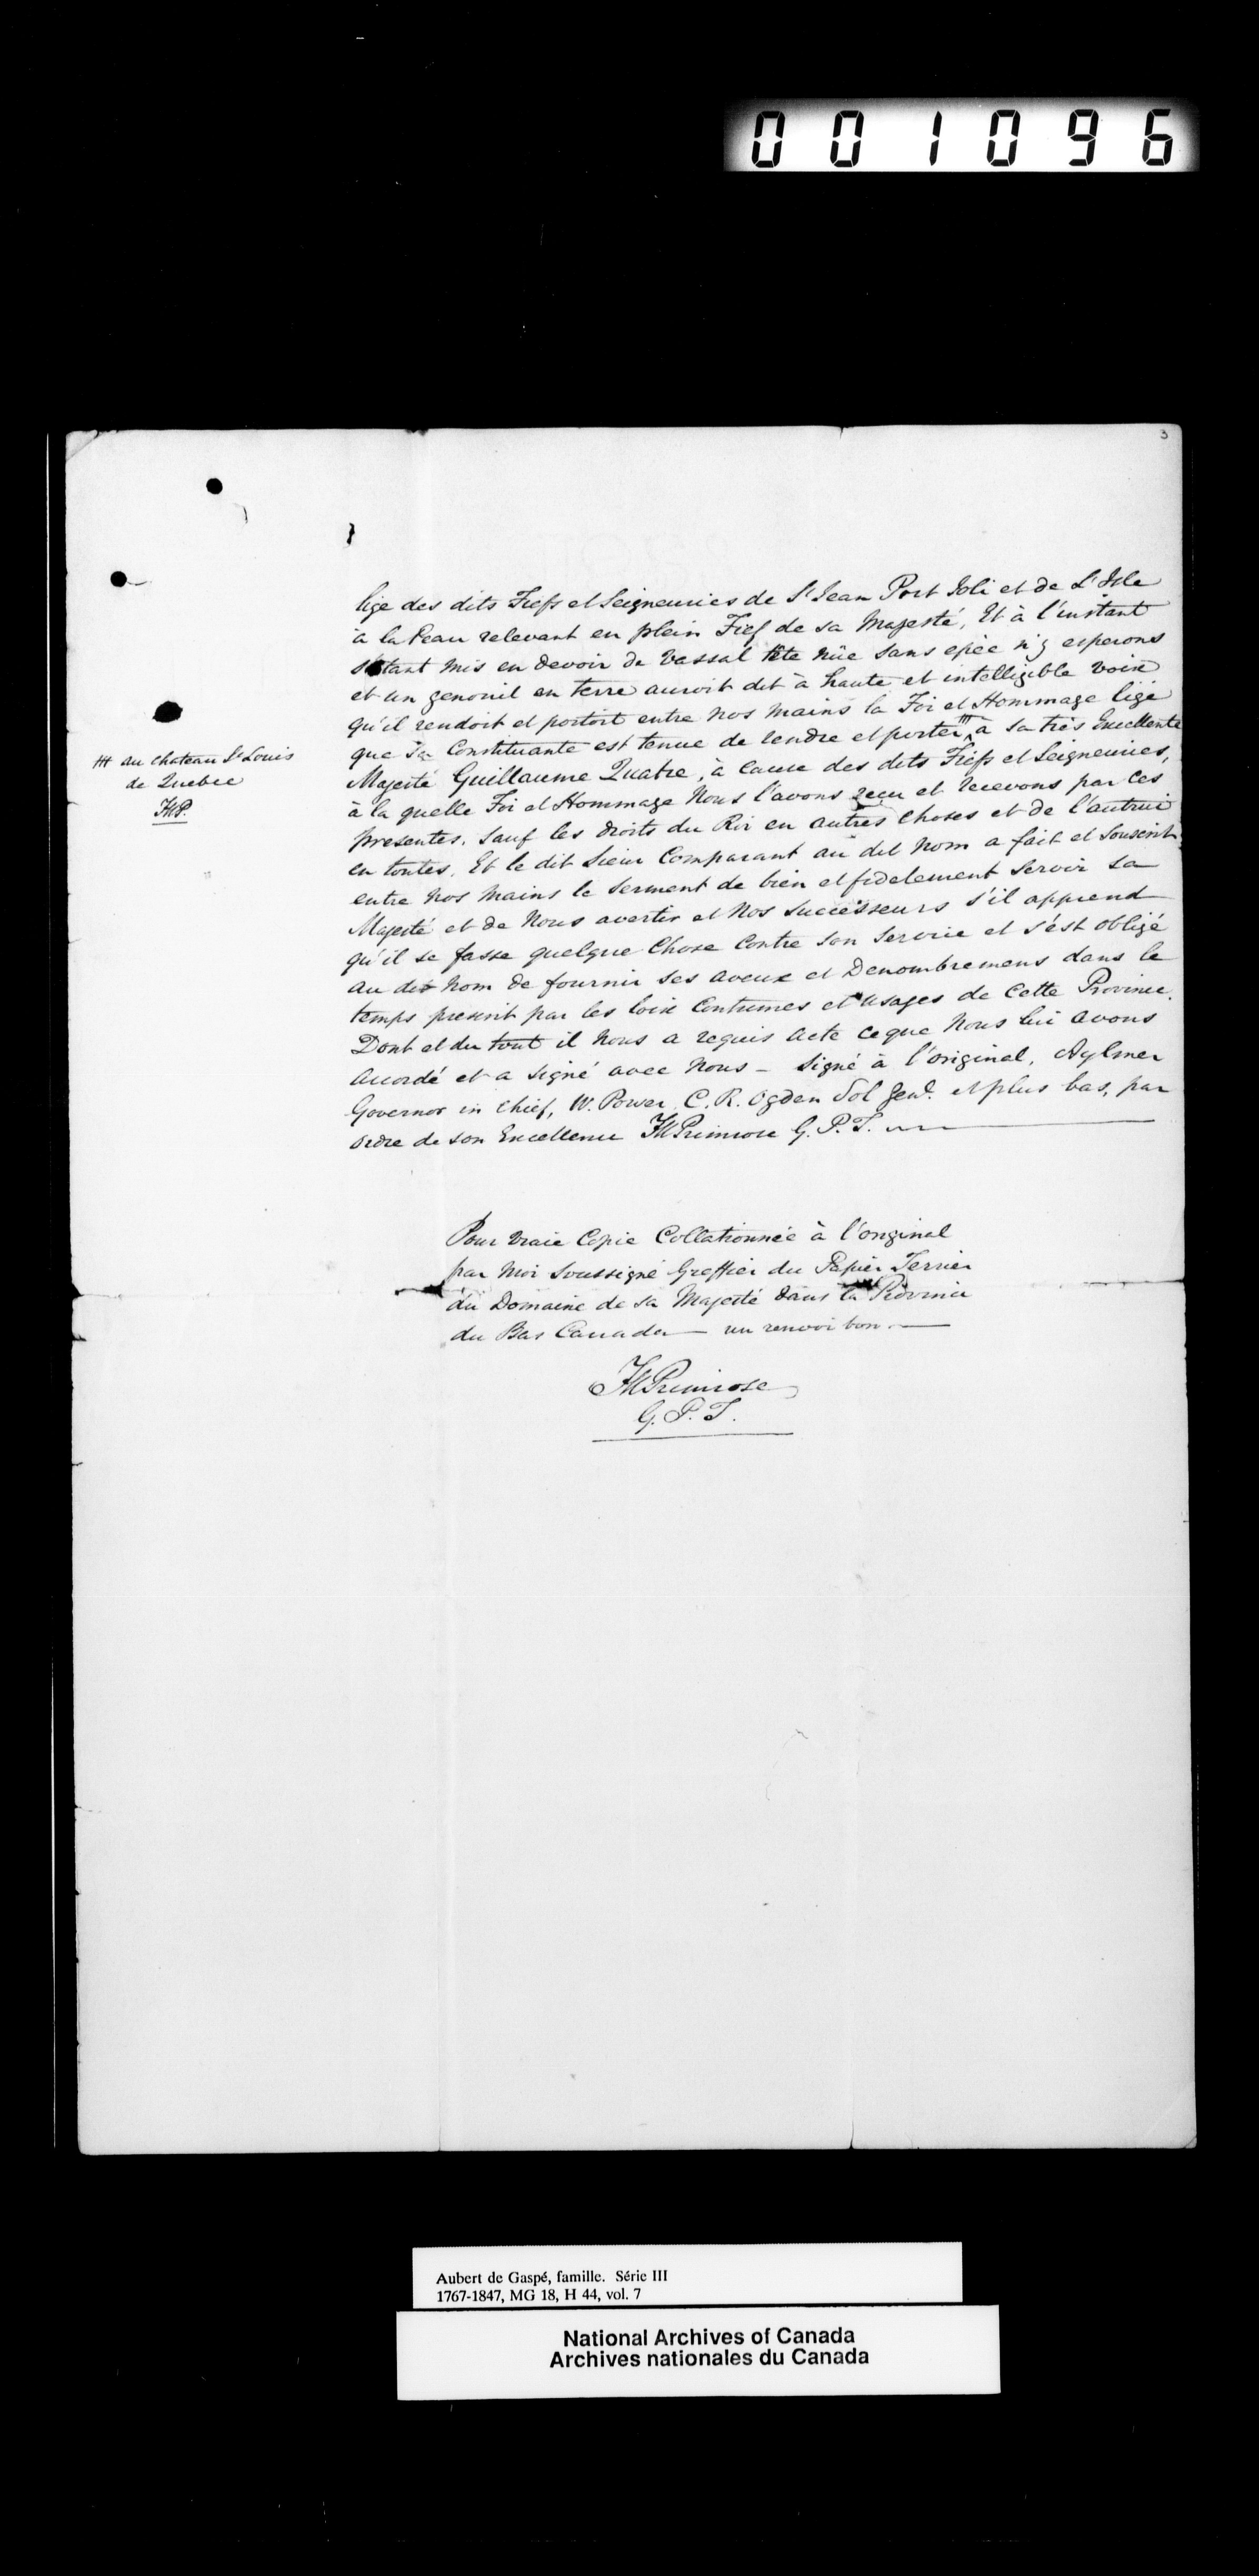 001096
3
lige des dits Fiefs et Seigneuries de St Jean Port Joli et de L'Isle
à la Peau relevant en plein Fief de sa Majesté, Et à l'instant
s'étant mis en devoir de Vassal tête nûe sans epée ni esperons
et un genouil en terre auroit dit à haute et intelligible voix
qu'il rendoit et portoit entre nos mains la Foi et Hommage lige
que sa Constituante est tenue de rendre et porter # à sa très Excellente
# au chateau St Louis
de Quebec
JMP.
Majesté Guillaume Quatre, à cause des dits Fiefs et Seigneuries,
à la quelle Foi et Hommage Nous l'avons reçu et recevons par ces
presentes. Sauf les droits du Roi en autres choses et de l'autrui
en toutes. Et le dit Sieur Comparant au dit nom a fait et souscrit
entre nos mains le Serment de bien et fidelement servir sa
Majesté et de Nous avertir et Nos Successeurs s'il apprend
qu'il se fasse quelque Chose Contre son Service et s'est obligé
au dit nom de fournir ses aveux et Denombremens dans le
temps prescrit par les loix Coutumes et usages de Cette Province.
Dont et du tout il Nous a requis acte ce que Nous lui avons
accordé et a signé avec Nous – Signé à l'original, Aylmer
Governor in Chief, W. Power, C. R. Ogden Sol Genl. et plus bas, par
ordre de son Excellence JM Primrose G. P. T.
Pour vraie Copie Collationnée à l'original
par Moi Soussigné Greffier du Papier Terrier
du Domaine de sa Majesté dans la Province
du Bas Canada — un renvoi bon —
JM Primrose
G. P. T.
Aubert de Gaspé, famille. Série III
1767-1847, MG 18, H 44, vol. 7
National Archives of Canada
Archives nationales du Canada